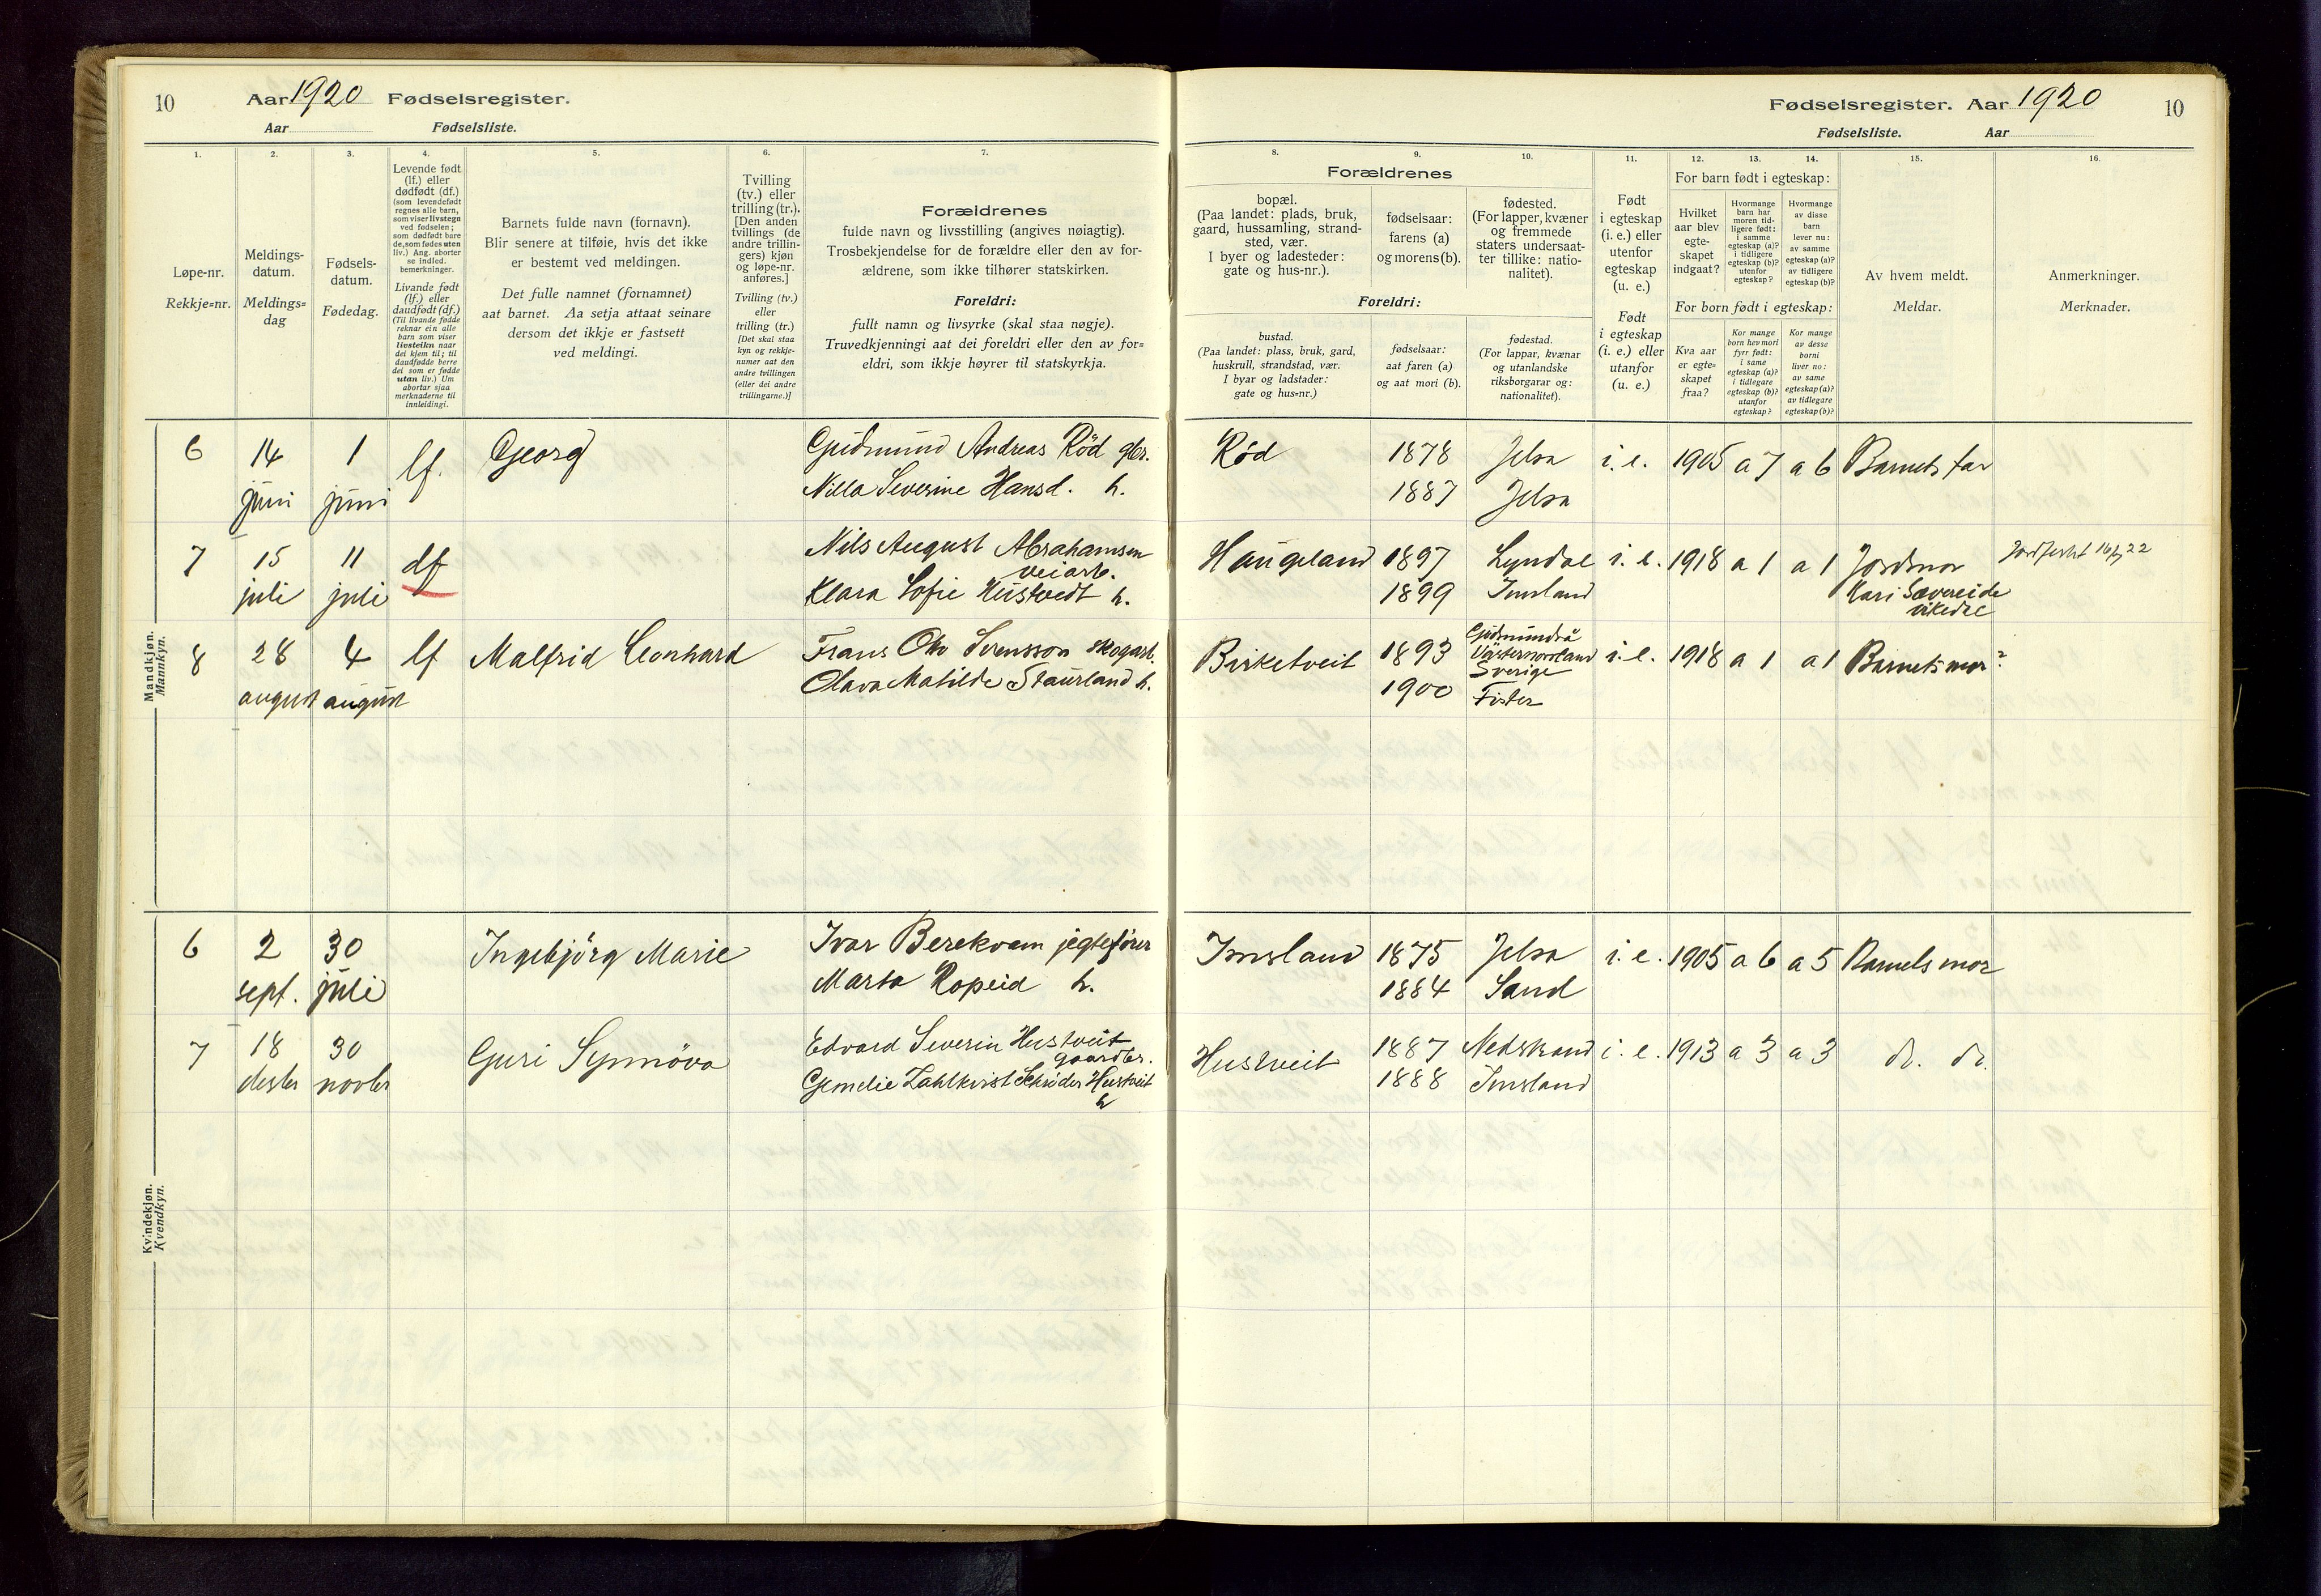 10 Aar 1920 Fødselsregister.
Aar Fødselsliste.
1.
Løpe-nr.
Rekkje=nr.
2.
Meldings-
datum.
Meldings=
dag
3.
Fødsels-
datum.
Fødedag.
4.
Levende født
(lf.) eller
dødfødt (df.)
(som levendefødt
regnes alle barn,
som viser livstegn
ved fødselen;
som dødfødt bare
de, som fødes uten
liv.) Ang. aborter
se indled.
bemerkninger.
Livande født
(lf.) eller
daudfødt (df.)
(Til livande fødde
reknar ein alle
barn som viser
livsteikn naar
dei kjem til; til
daudfødde berre
dei som er fødde
utan liv.) Um
abortar sjaa
merknaderne til
innleidingi.
5.
Barnets fulde navn (fornavn).
Blir senere at tilføie, hvis det ikke
er bestemt ved meldingen.
Det fulle namnet (fornamnet)
aat barnet. Aa setja attaat seinare
dersom det ikkje er fastsett
ved meldingi.
6.
Tvilling
(tv.) eller
trilling (tr.).
[Den anden
tvillings (de
andre trillin-
gers) kjøn
og løpe-nr.
anføres.]
Tvilling (tv.)
eller
trilling (tr.)
[Det skal staa
kyn og rekkje-
numer aat den
andre tvillingen
(eller dei andre
trillingarne.)]
7.
Forældrenes
fulde navn og livsstilling (angives nøiagtig).
Trosbekjendelse for de forældre eller den av for-
ældrene, som ikke tilhører statskirken.
Foreldri:
fullt namn og livsyrke (skal staa nøgje).
Truvedkjenningi aat dei foreldri eller den av for=
eldri, som ikkje høyrer til statskyrkja.
Mandkjøn.
Mannkyn.
6 14 juni 1 juni lf. Georg
Gudmund Andreas Röd gbr.
Nilla Severine Hansd. h.
7 15 juli 11 juli df
Nils August Abrahamsen
veiarb.
Klara Sofie Hustvedt h.
8 28 august 4 august lf Malfrid Leonhard
Frans Otto Svensson skogarb.
Olava Matilde Staurland h.
Kvindekjøn.
Kvendkyn.
6 2 sept. 30 juli Ingebjörg Marie
Ivar Berekvam jegtefører
Marta Ropeid h.
7 18 desbr 30 novbr Guri Synnöva
Edvard Severin Hustveit
gaardbr.
Hustveit
h
Fødselsregister. Aar 1920 10
Fødselsliste. Aar
8.
Forældrenes
bopæl.
(Paa landet: plads, bruk,
gaard, hussamling, strand-
sted, vær.
I byer og ladesteder:
gate og hus-nr.).
Foreldri:
bustad.
(Paa landet: plass, bruk, gard,
huskrull, strandstad, vær.
I byar og ladstader:
gate og hus=nr.)
9.
fødselsaar:
farens (a)
og morens (b).
fødselsaar:
aat faren (a)
og aat mori (b).
10.
fødested.
(For lapper, kvæner
og fremmede
staters undersaat-
ter tillike: natio-
nalitet).
fødestad.
(For lappar, kvænar
og utanlandske
riksborgarar og:
nationalitet).
11.
Født
i egteskap
(i. e.) eller
utenfor
egteskap
(u. e.)
Født
i egteskap
(i. e.) eller
utanfor
(u. e.)
12. 13. 14.
For barn født i egteskap:
Hvilket
aar blev
egte-
skapet
indgaat?
Hvormange
barn har
moren tid-
ligere født:
i samme
egteskap (a)?
i tidligere
egteskap (b)?
utenfor
egteskap?
Hvormange
av disse
barn
lever nu:
av samme
egteskap (a)?
av tidligere
egteskap (b)?
For born født i egteskap:
Kva aar
er egte=
skapet
fraa?
Kor mange
born hev mori
fyrr født:
i same
egteskap (a)?
i tidlegare
egteskap (b)?
utanfor
egteskap?
Kor mange
av desse
borni
liver no:
av same
egteskap (a)?
av tidlegare
egteskap (b)?
15.
Av hvem meldt.
Meldar.
16.
Anmerkninger.
Merknader.
Röd 1878 Jelsa i. e. 1905 a 7 a 6 Barnets far
1887 Jelsa
Haugeland 1897 Lyndal i. e. 1918 a 1 a 1 Jordmor
1899 Imsland Kari Sævereide
vikedre
Birketveit 1893 Gudmundrå
Västernorrland
Sverige i. e. 1918 a 1 a 1 Barnets mor?
1900 Fister
Imsland 1875 Jelsa i. e. 1905 a 6 a 5 Barnets mor
1884 Sand
Hustveit 1887 Nedstrand i. e. 1913 a 3 a 3 do. do.
1888 Imsland